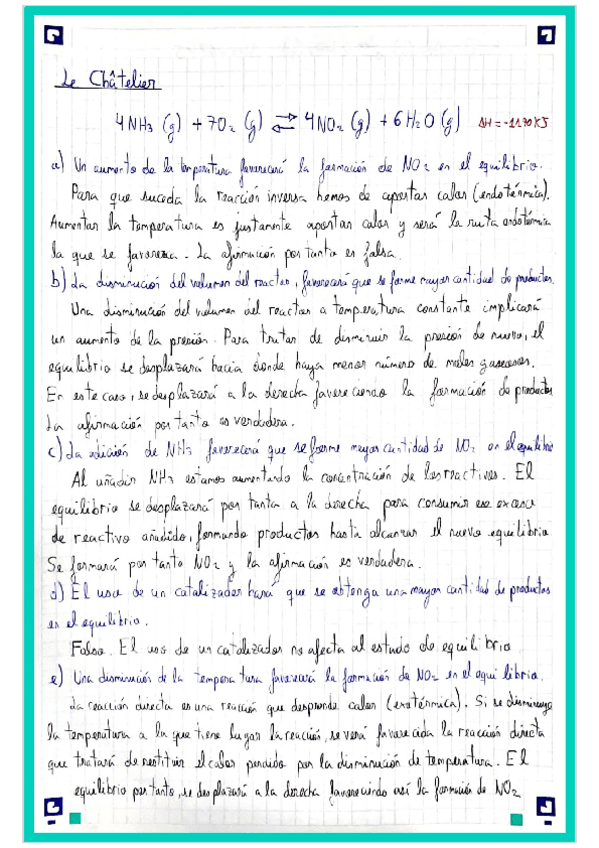 Le Châtelier
4NH₃ (g) + 7O₂ (g) ⇌ 4NO₂ (g) + 6H₂O (g) ΔH = -1170 KJ
a) Un aumento de la temperatura favorecerá la formación de NO₂ en el equilibrio.
Para que suceda la reacción inversa hemos de aportar calor (endotérmica).
Aumentar la temperatura es justamente aportar calor y será la ruta endotérmica
la que se favorezca. La afirmación por tanto es falsa.
b) La disminución del volumen del reactor, favorecerá que se forme mayor cantidad de productos.
Una disminución del volumen del reactor a temperatura constante implicará
un aumento de la presión. Para tratar de disminuir la presión de nuevo, el
equilibrio se desplazará hacia donde haya menor número de moles gaseosos.
En este caso, se desplazará a la derecha favoreciendo la formación de productos
La afirmación por tanto es verdadera.
c) La adición de NH₃ favorecerá que se forme mayor cantidad de NO₂ en el equilibrio
Al añadir NH₃ estamos aumentando la concentración de los reactivos. El
equilibrio se desplazará por tanto a la derecha para consumir ese exceso
de reactivo añadido, formando productos hasta alcanzar el nuevo equilibrio
Se formará por tanto NO₂ y la afirmación es verdadera.
d) El uso de un catalizador hará que se obtenga una mayor cantidad de productos
en el equilibrio.
Falso. El uso de un catalizador no afecta al estado de equilibrio
e) Una disminución de la temperatura favorecerá la formación de NO₂ en el equilibrio.
La reacción directa es una reacción que desprende calor (exotérmica). Si se disminuye
la temperatura a la que tiene lugar la reacción, se verá favorecida la reacción directa
que tratará de restituir el calor perdido por la disminución de temperatura. El
equilibrio por tanto, se desplazará a la derecha favoreciendo así la formación de NO₂